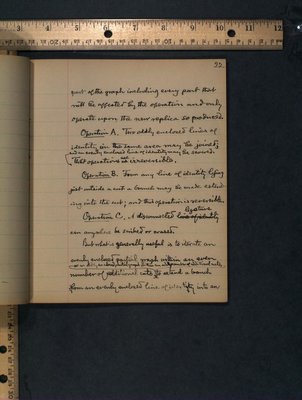 22.
part of the graph including every part that
will be affected by the operation and only
operate upon the new replica so produced.
Operation A. Two oddly enclosed lines of
identity in the same area may be joined;
and an evenly enclosed line of identity may be severed.
That operation is irreversible.
Operation B. From any line of identity lying
just outside a cut a branch may be made extend
ing into the cut; and this operation is reversible.
Operation C. A disconnected
can anywhere be scribed or erased.
But what is generally useful is to iterate an
evenly enclosed partial graph within an even
number of additional cuts to extend a branch
from an evenly enclosed line of identity into an